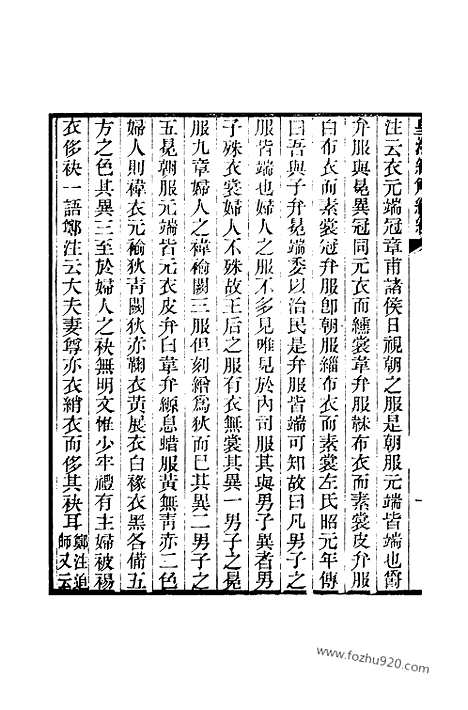 皇清經解續編
注云衣元端冠章甫諸侯日視朝之服是朝服元端皆端也爵
弁服與冕異冠同元衣而纁裳韋弁服韎布衣而素裳皮弁服
白布衣而素裳冠弁服卽朝服緇布衣而素裳左氏昭元年傳
曰吾與子弁冕端委以治民是弁服皆端可知故曰凡男子之
服皆端也婦人之服不多見唯見於內司服其與男子異者男
子殊衣裳婦人不殊故王后之服有衣無裳其異一男子之冕
服九章婦人之褘褕闕三服但刻繒爲狄而已其異二男子之
五冕朝服元端皆元衣皮弁白韋弁縓息蜡服黃無靑亦二色
婦人則褘衣元褕狄靑闕狄赤鞠衣黃展衣白褖衣黑各備五
方之色其異三至於婦人之袂無明文惟少牢禮有主婦被裼
衣侈袂一語鄭注云大夫妻尊亦衣綃衣而侈其袂耳鄭注追
師又云
www.fozhu920.com